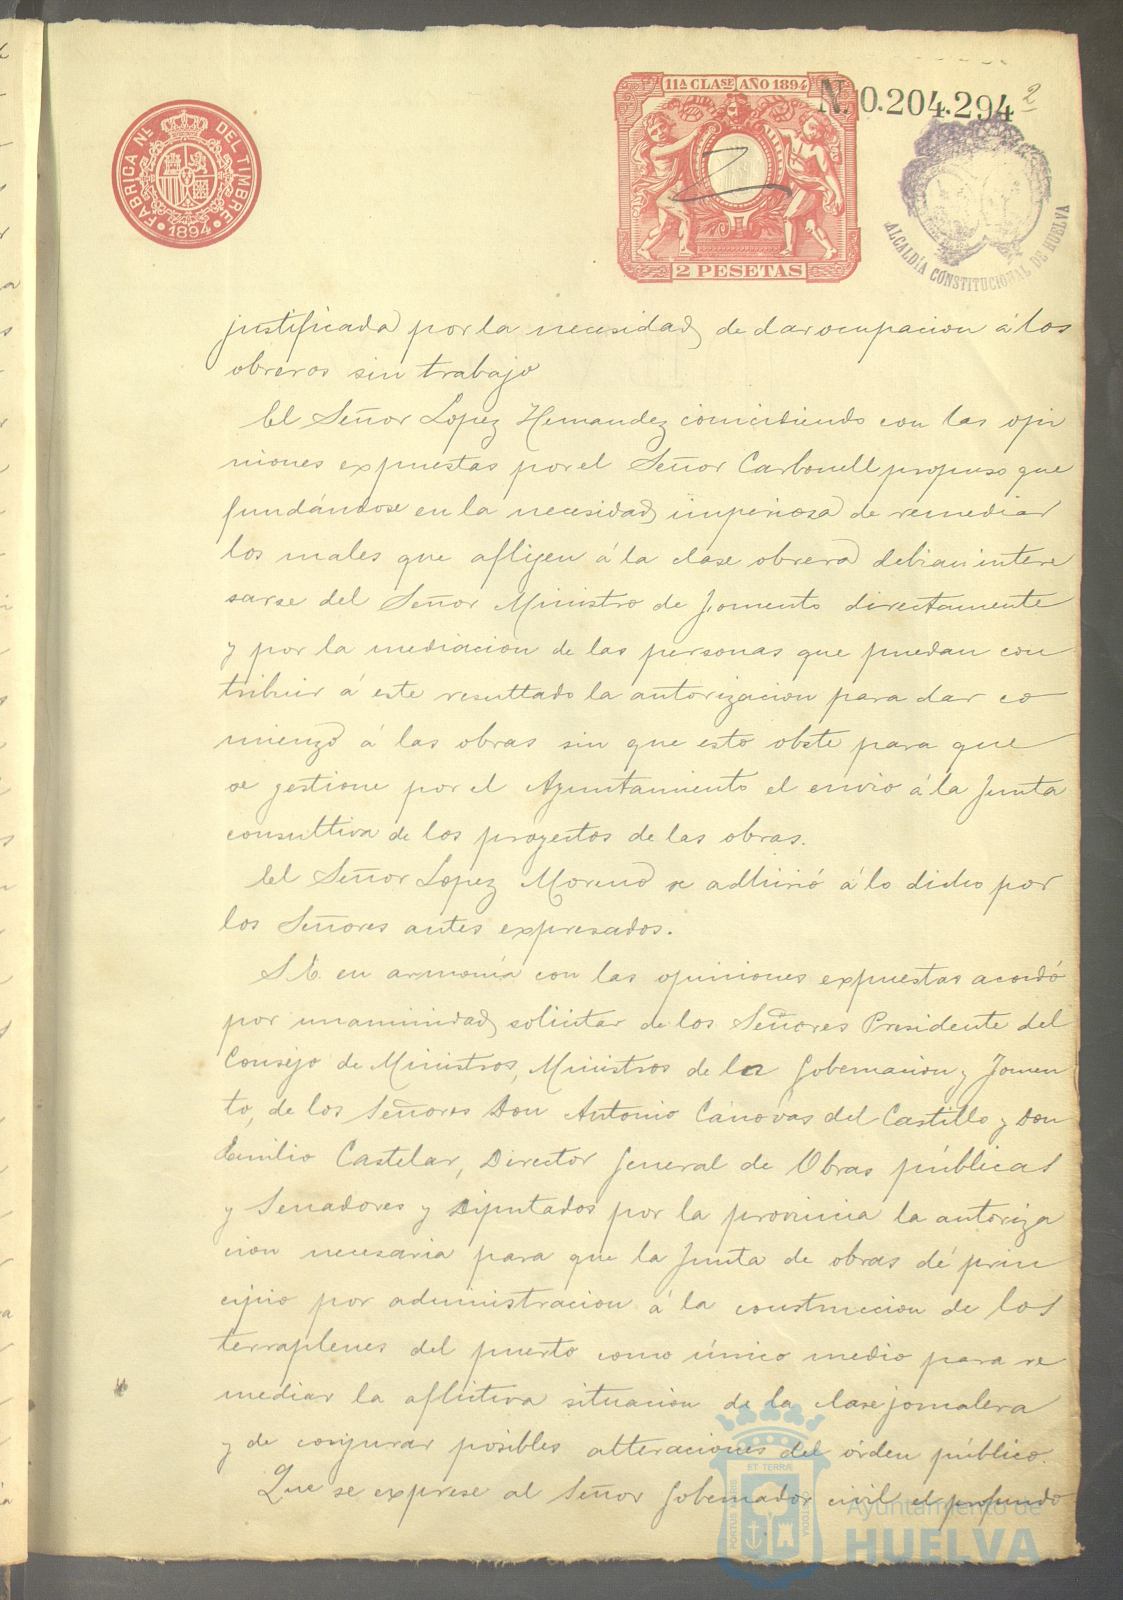 FABRICA Nᴸ DEL TIMBRE
1894
11ª CLASE AÑO 1894
N. 0.204.294
2
2 PESETAS
ALCALDÍA CONSTITUCIONAL DE HUELVA
justificada por la necesidad de dar ocupacion á los
obreros sin trabajo
El Señor Lopez Hernandez coincidiendo con las opi
niones expuestas por el Señor Carbonell propuso que
fundándose en la necesidad imperiosa de remediar
los males que afligen á la clase obrera debian intere
sarse del Señor Ministro de Fomento directamente
y por la mediacion de las personas que puedan con
tribuir á este resultado la autorizacion para dar co
mienzo á las obras sin que esto obste para que
se gestione por el Ayuntamiento el envio á la Junta
consultiva de los proyectos de las obras.
El Señor Lopez Moreno se adhirió á lo dicho por
los Señores antes expresados.
S.E. en armonía con las opiniones expuestas acordó
por unanimidad solicitar de los Señores Presidente del
Consejo de Ministros, Ministros de la Gobernacion y Fomen
to, de los Señores Don Antonio Cánovas del Castillo y Don
Emilio Castelar, Director General de Obras públicas
y Senadores y Diputados por la provincia la autoriza
cion necesaria para que la Junta de obras dé prin
cipio por administracion á la construccion de los
terraplenes del puerto como único medio para re
mediar la aflictiva situacion de la clase jornalera
y de conjurar posibles alteraciones del órden público.
Que se exprese al Señor Gobernador civil el profundo
PORTUS MARIS ET TERRÆ CUSTODIA
Ayuntamiento de
HUELVA